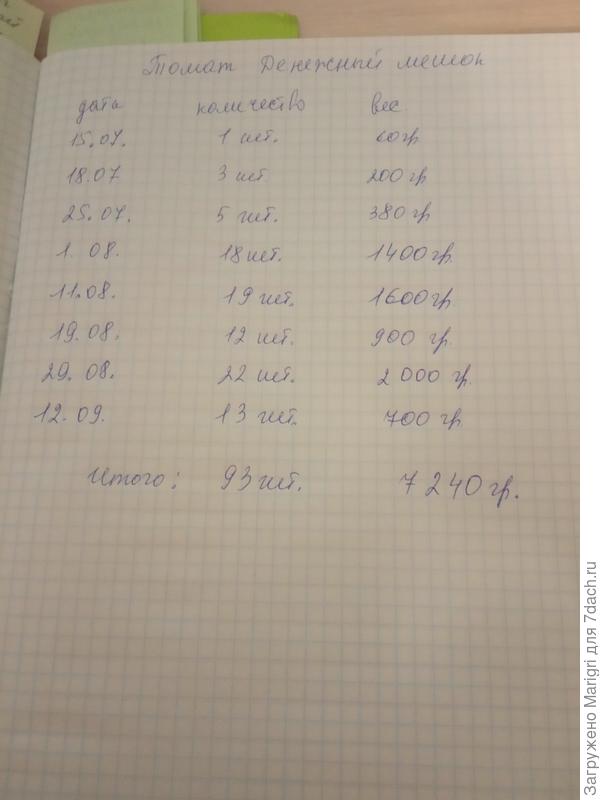 Томат Денежный мешок
дата количество вес
15.07. 1 шт. 60гр
18.07 3 шт 200 гр
25.07. 5 шт. 380 гр
1. 08. 18 шт. 1400 гр.
11.08. 19 шт. 1600 гр
19.08. 12 шт. 900 гр.
29. 08. 22 шт. 2 000 гр.
12. 09. 13 шт. 700 гр
Итого: 93 шт. 7 240 гр.
Загружено Marigri для 7dach.ru